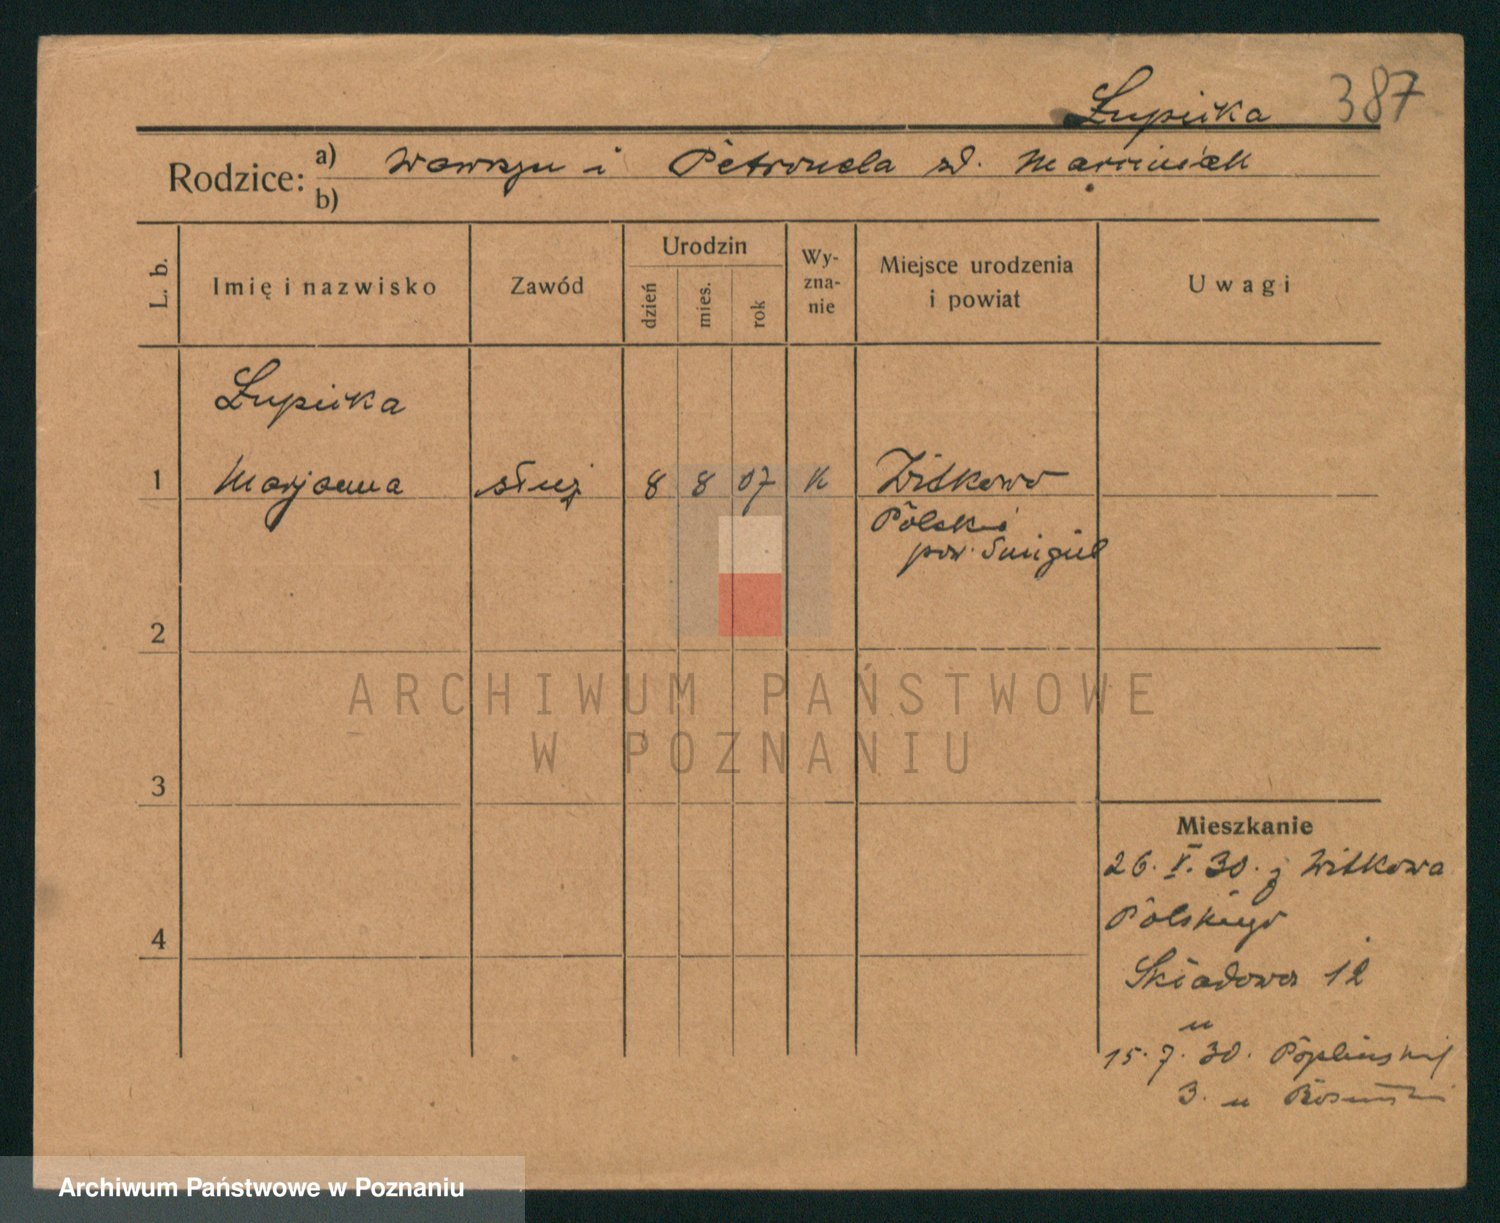 Łupicka 387
Rodzice: a) Wawrzyn i Petronela zd. Marciniak
b)
L. b.
Imię i nazwisko
Zawód
Urodzin
dzień
mies.
rok
Wy-
zna-
nie
Miejsce urodzenia
i powiat
Uwagi
Łupicka
1 Marjanna służ 8 8 07 k Witkowo
Polskie
pow. Śmigiel
2
3
4
ARCHIWUM PAŃSTWOWE
W POZNANIU
Mieszkanie
26. V. 30. z Witkowa
Polskiego
Składowa 12
u
15. 7. 30. Poplińskich
3. u
Archiwum Państwowe w Poznaniu